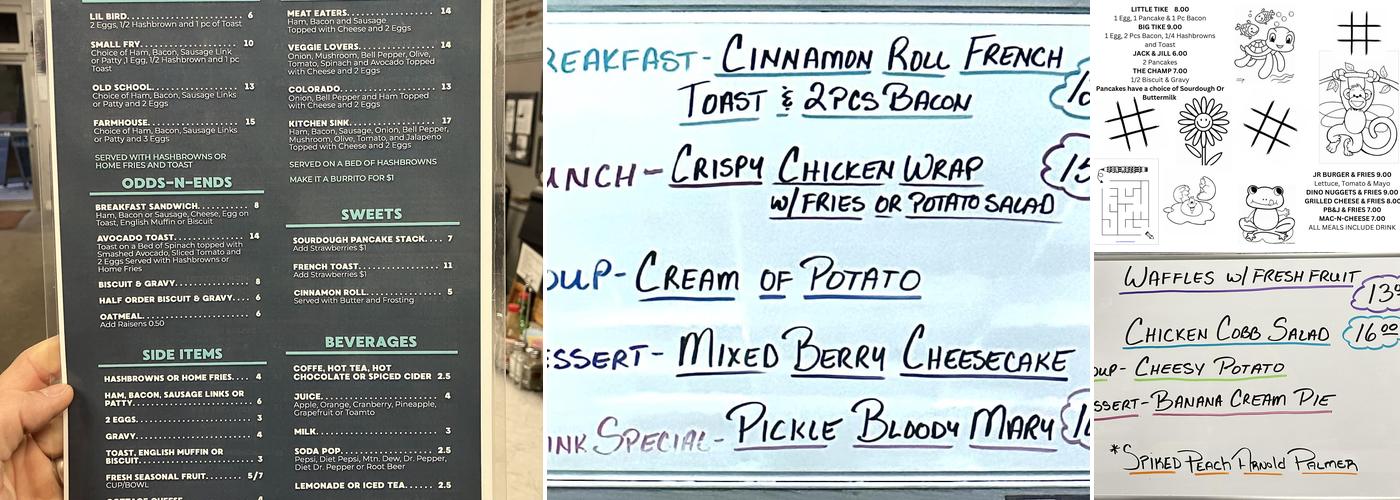 LIL BIRD. 6
2 Eggs, 1/2 Hashbrown and 1 pc of Toast
SMALL FRY. 10
Choice of Ham, Bacon, Sausage Link
or Patty ,1 Egg, 1/2 Hashbrown and 1 pc
Toast
OLD SCHOOL. 13
Choice of Ham, Bacon, Sausage Links
or Patty and 2 Eggs
FARMHOUSE. 15
Choice of Ham, Bacon, Sausage Links
or Patty and 3 Eggs
SERVED WITH HASHBROWNS OR
HOME FRIES AND TOAST
ODDS-N-ENDS
BREAKFAST SANDWICH. 8
Ham, Bacon or Sausage, Cheese, Egg on
Toast, English Muffin or Biscuit
AVOCADO TOAST. 14
Toast on a Bed of Spinach topped with
Smashed Avocado, Sliced Tomato and
2 Eggs Served with Hashbrowns or
Home Fries
BISCUIT & GRAVY. 8
HALF ORDER BISCUIT & GRAVY. 6
OATMEAL. 6
Add Raisens 0.50
SIDE ITEMS
HASHBROWNS OR HOME FRIES. 4
HAM, BACON, SAUSAGE LINKS OR
PATTY. 6
2 EGGS. 3
GRAVY. 4
TOAST, ENGLISH MUFFIN OR
BISCUIT. 3
FRESH SEASONAL FRUIT. 5/7
CUP/BOWL
COTTAGE CHEESE 4
MEAT EATERS. 14
Ham, Bacon and Sausage
Topped with Cheese and 2 Eggs
VEGGIE LOVERS. 14
Onion, Mushroom, Bell Pepper, Olive,
Tomato, Spinach and Avocado Topped
with Cheese and 2 Eggs
COLORADO. 13
Onion, Bell Pepper and Ham Topped
with Cheese and 2 Eggs
KITCHEN SINK. 17
Ham, Bacon, Sausage, Onion, Bell Pepper,
Mushroom, Olive, Tomato, and Jalapeno
Topped with Cheese and 2 Eggs
SERVED ON A BED OF HASHBROWNS
MAKE IT A BURRITO FOR $1
SWEETS
SOURDOUGH PANCAKE STACK. 7
Add Strawberries $1
FRENCH TOAST. 11
Add Strawberries $1
CINNAMON ROLL. 5
Served with Butter and Frosting
BEVERAGES
COFFE, HOT TEA, HOT
CHOCOLATE OR SPICED CIDER 2.5
JUICE. 4
Apple, Orange, Cranberry, Pineapple,
Grapefruit or Toamto
MILK. 3
SODA POP. 2.5
Pepsi, Diet Pepsi, Mtn. Dew, Dr. Pepper,
Diet Dr. Pepper or Root Beer
LEMONADE OR ICED TEA. 2.5
REAKFAST - CINNAMON ROLL FRENCH
TOAST & 2PCS BACON
UNCH - CRISPY CHICKEN WRAP 15
W/FRIES OR POTATO SALAD
OUP - CREAM OF POTATO
ESSERT - MIXED BERRY CHEESECAKE
INK SPECIAL - PICKLE BLOODY MARY
LITTLE TIKE 8.00
1 Egg, 1 Pancake & 1 Pc Bacon
BIG TIKE 9.00
1 Egg, 2 Pcs Bacon, 1/4 Hashbrowns
and Toast
JACK & JILL 6.00
2 Pancakes
THE CHAMP 7.00
1/2 Biscuit & Gravy
Pancakes have a choice of Sourdough Or
Buttermilk
JR BURGER & FRIES 9.00
Lettuce, Tomato & Mayo
DINO NUGGETS & FRIES 9.00
GRILLED CHEESE & FRIES 8.00
PB&J & FRIES 7.00
MAC-N-CHEESE 7.00
ALL MEALS INCLUDE DRINK
WAFFLES W/ FRESH FRUIT 13
CHICKEN COBB SALAD 16.00
OUP - CHEESY POTATO
SSERT - BANANA CREAM PIE
*SPIKED PEACH ARNOLD PALMER